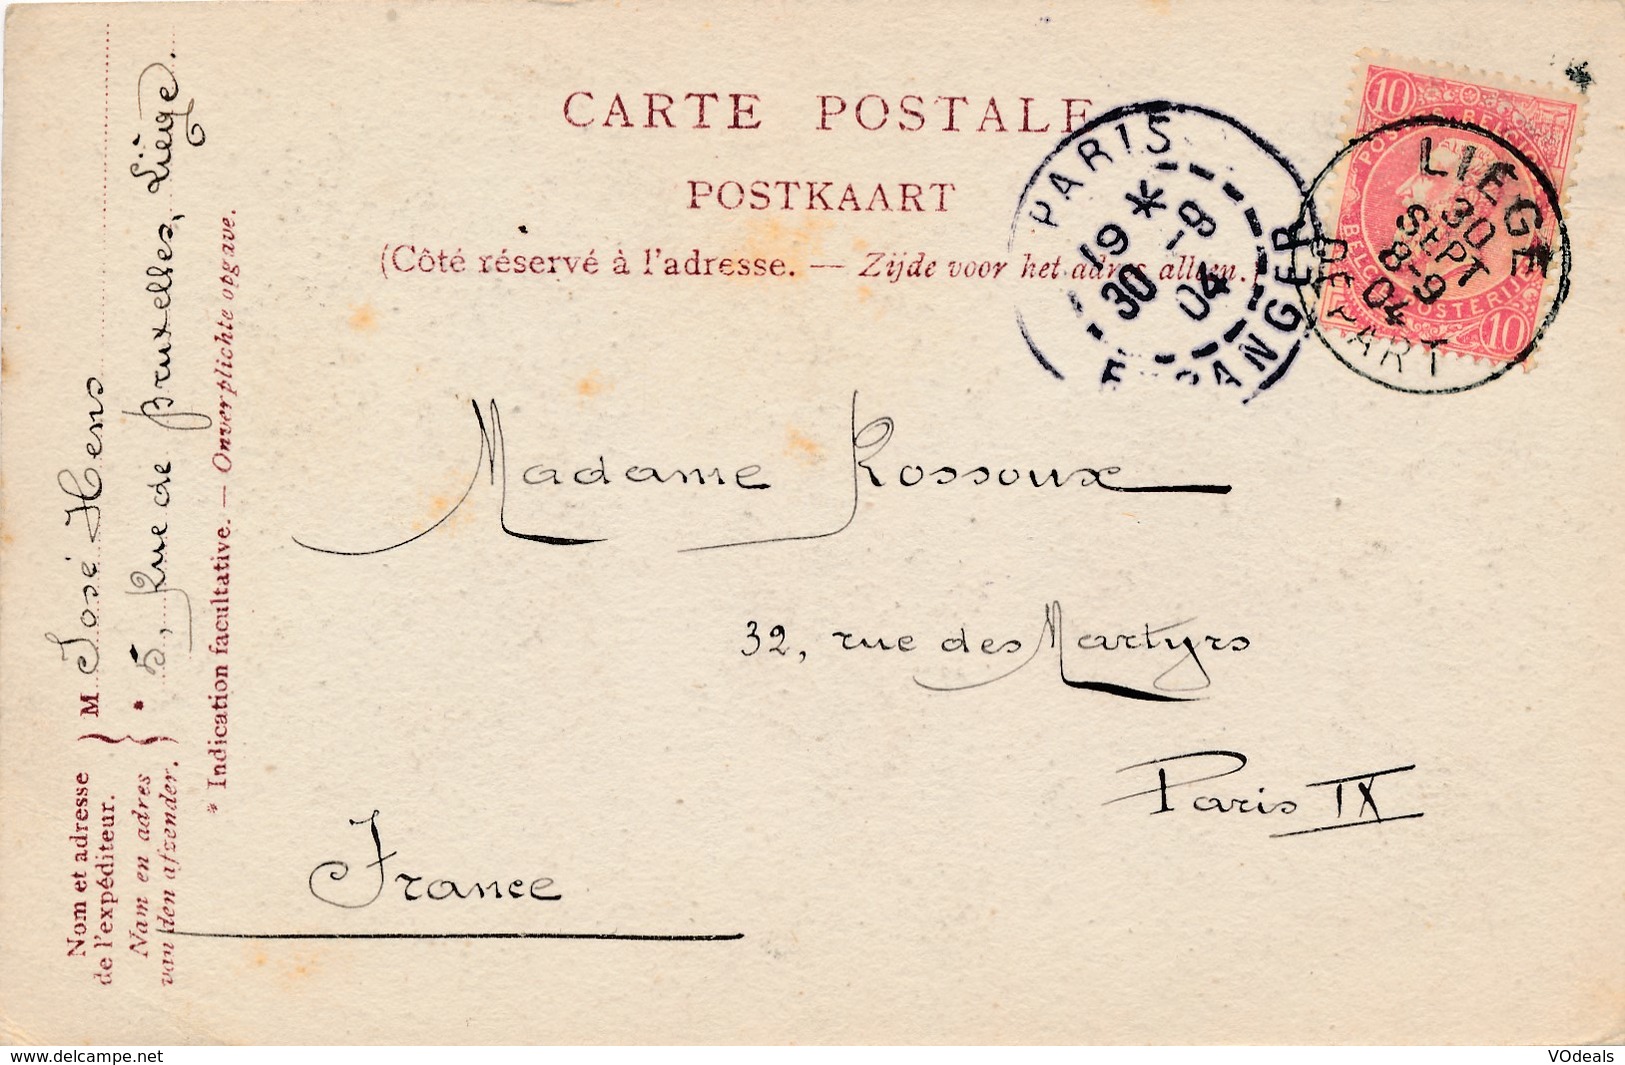 CARTE POSTALE
POSTKAART
(Côté réservé à l'adresse. — Zijde voor het adres alleen.)
Madame Rossoux
32, rue des Martyrs
Paris IX
France
Nom et adresse
de l'expéditeur.
Nam en adres
van den afzender.
M José Hens
* 5, Rue de Bruxelles, Liège.
* Indication facultative. — Onverplichte opgave.
PARIS
19 * -9
30 04
ETRANGER
LIÉGE
30
SEPT
8-9
04
DÉPART
10
10
www.delcampe.net
VOdeals